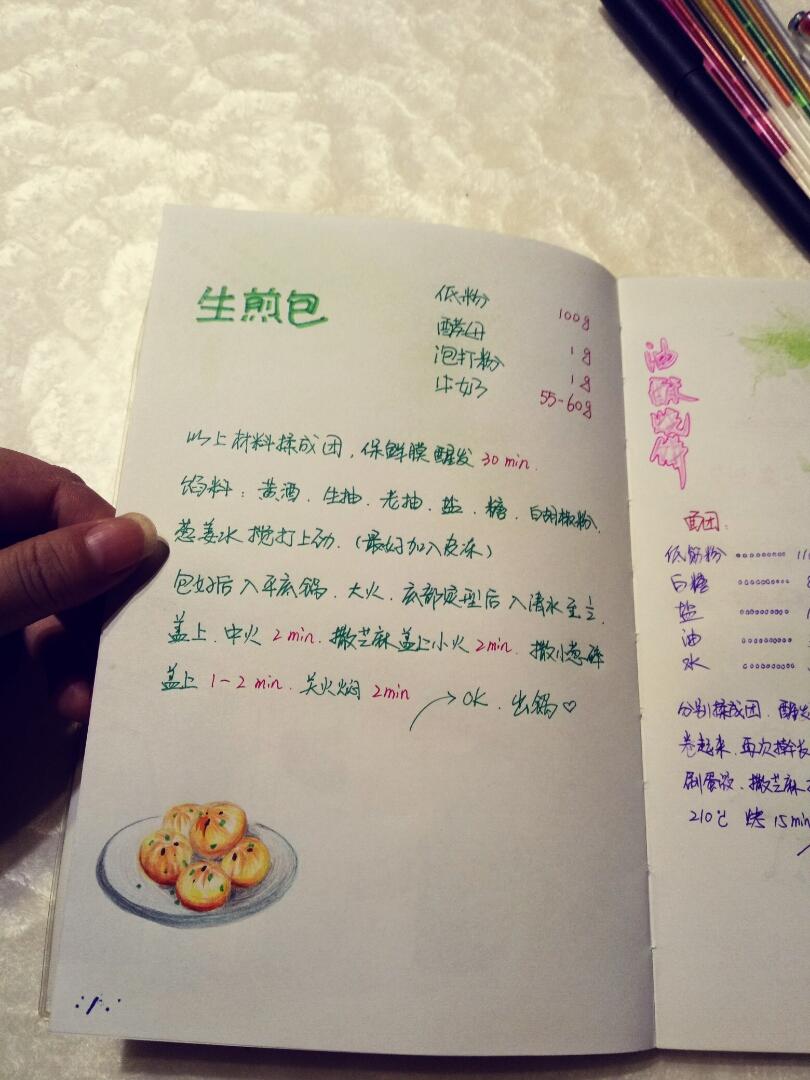 生煎包
低粉 100g
酵母 1g
泡打粉 1g
牛奶 55-60g
以上材料揉成团，保鲜膜醒发 30min.
馅料：黄酒、生抽、老抽、盐、糖、白胡椒粉、
葱姜水 搅打上劲.（最好加入皮冻）
包好后入平底锅、大火、底部定型后入清水至½.
盖上、中火 2min. 撒芝麻盖上小火 2min. 撒小葱碎
盖上 1-2min. 关火焖 2min → OK、出锅♡
油酥烧饼
面团：
低筋粉
白糖
盐
油
水
分别揉成团、醒发
卷起来、再次擀长
刷蛋液、撒芝麻
210℃ 烤 15min